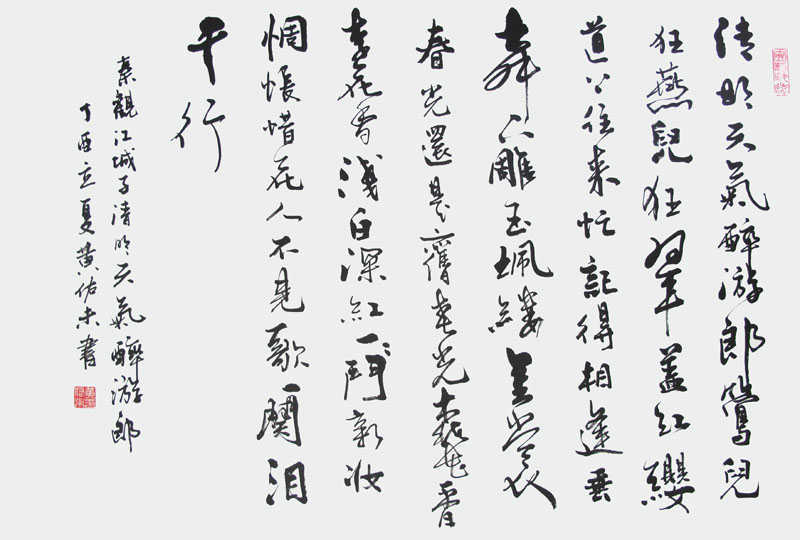 清明天氣醉游郎鶯兒
狂燕兒狂翠蓋紅纓
道上往来忙記得相逢垂
下雕玉珮縷金裳
春光還是舊春光桃花香
李花香淺白深紅一一鬥新妆
惆悵惜花人不見歌一闋泪
千行
秦觀江城子清明天氣醉游郎
丁酉立夏黄佑未書